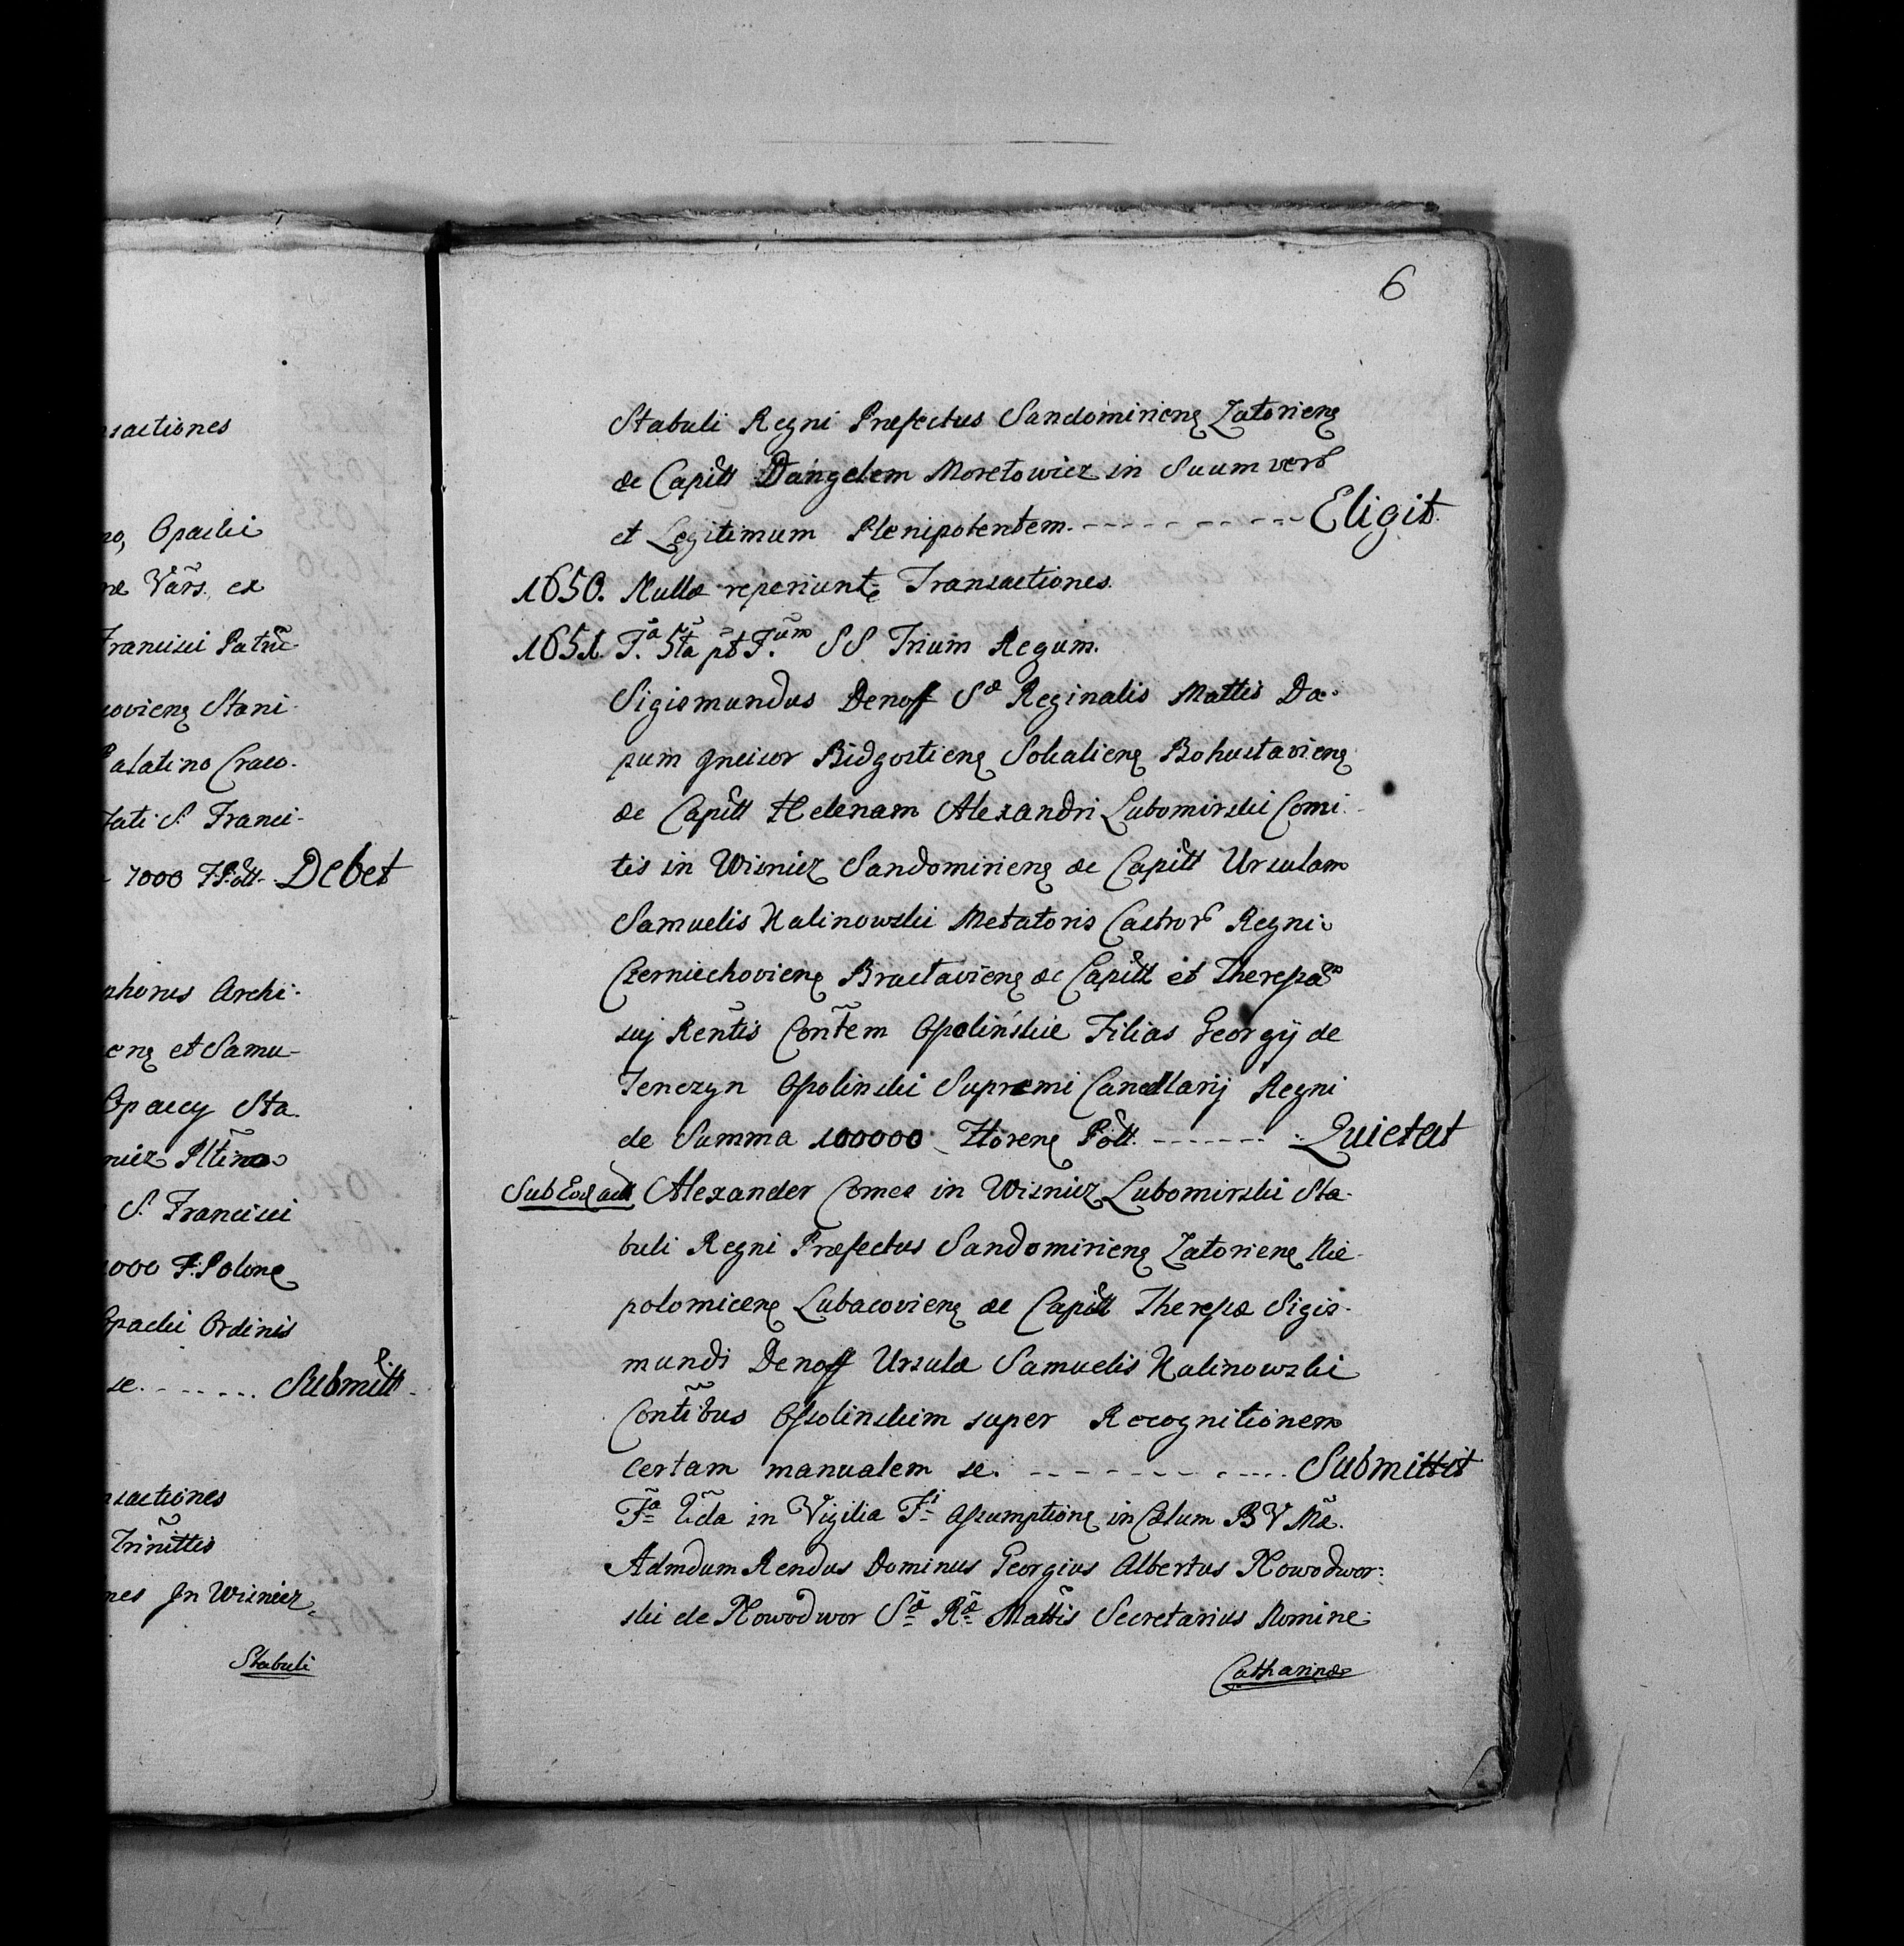 sactiones
no, Opacki
næ Vars. ex
Francisci Patric
coviens Stani
Palatino Craco.
Tati S. Franci-
- 7000 F. Poll. Debet
phorus Archi-
et Samu-
Opaccy Sta.
S. Francisci
000 F. Polon
Opacki Ordinis
se. - - - - - . Submitt.
sactiones
Trinittis
mes In Wisnicz
Stabuli
6
Stabuli Regni Præfectus Sandomiriens Zatoriens
&c Capitt Dangelem Moretowicz in Suum ver
et Legitimum Plenipotentem. - - - - - - - - - Eligit.
1650. Nullæ reperiunt Transactiones.
1651. F.a 5ta pt F.um SS Trium Regum.
Sigismundus Denoff Sæ Reginalis Mattis Da-
pum Incisor Bidgostiens Sokaliens Bohuslaviens
&c Capitt Helenam Alexandri Lubomirski Comi-
tis in Wisnicz Sandomiriens &c Capitt Ursulam
Samuelis Kalinowski Metatoris Castror Regni
Czerniechoviens Braclaviens &c Capitt et Theressam
sui Rentis Contem Ossolinskie Filias Georgij de
Tenczyn Ossolinski Supremi Cancellarij Regni
de Summa 100000 Florens Poll. - - - - - - Quietat
Sub Eod act Alexander Comes in Wisnicz Lubomirski Sta-
buli Regni Præfectus Sandomiriens Zatoriens Nie-
polomicens Lubacoviens &c Capitt Theressæ Sigis-
mundi Denoff Ursulæ Samuelis Kalinowski
Contibus Ossolinskim super Recognitionem
certam manualem se. - - - - - - - - - - Submittit
Fa 2da in Vigilia Fi Assumptions in Cælum B V Mæ.
Admdum Rendus Dominus Georgius Albertus Nowodwor-
ski de Nowodwor Sæ Ræ Mattis Secretarius Nomine
Catharinæ